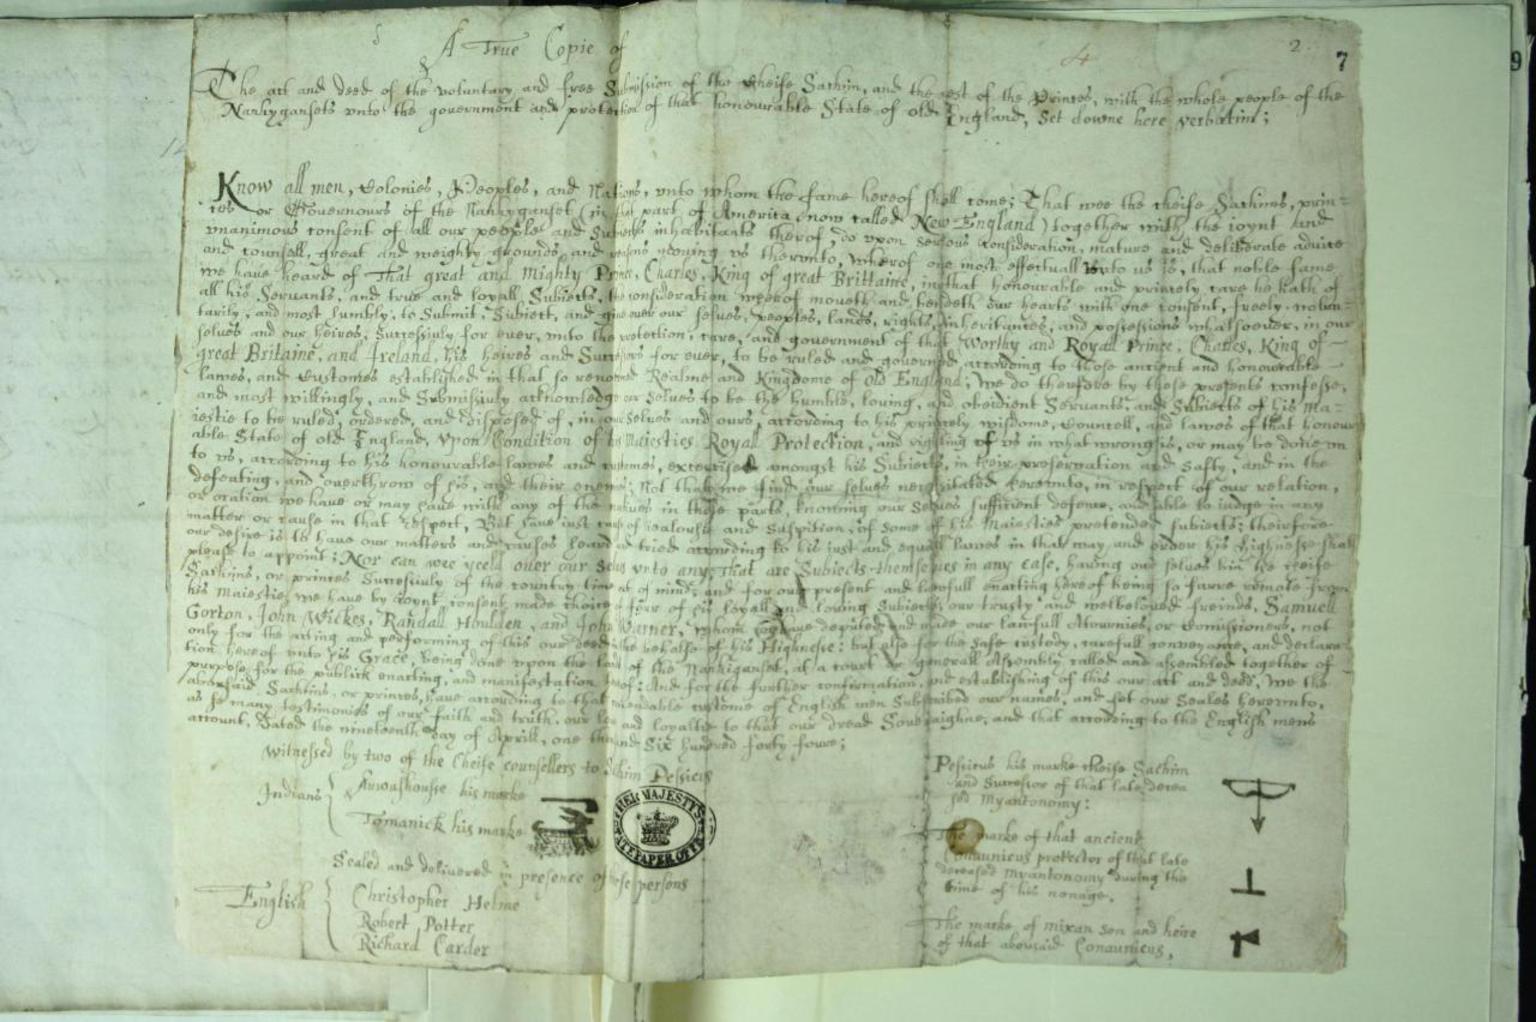 A True Copie of
2
7
9
The act and deed of the voluntary and free Submission of the cheife Sachim, and the rest of the Princes, with the whole people of the
Nanhygansets unto the government and protection of that honourable State of old England, Set downe here verbatim;
Know all men, Colonies, Peoples, and Nations, unto whom the fame hereof shall come; That wee the cheife Sachims, prin-
ces or Governours of the Nanhyganset (in that part of America, now called New-England) together with the joynt and
unanimous consent of all our people and Subjects inhabitants therof, do upon serious consideration, mature and deliberate advice
and counsell, great and weighty grounds and reasons moving us therunto, wherof one most effectuall unto us is, that noble fame
we have heard of That great and Mighty Prince, Charles, King of great Brittaine, in that honourable and princely care he hath of
all his Servants, and true and loyall Subjects, the consideration wherof moveth and bendeth our hearts with one consent, freely, volun-
tarily, and most humbly, to Submit, Subject, and give over our selves, peoples, lands, rights, inheritances, and possessions whatsoever, in our
selves and our heires, Successivly for ever, unto the protection, care, and government of that Worthy and Royall Prince, Charles, King of
great Britaine, and Ireland, his heires and Successors for ever, to be ruled and governed according to those ancient and honourable
lawes, and customes established in that so renowned Realme and Kingdome of Old England; We do therfore by these presents confesse,
and most willingly, and Submissivly acknowledge our selves to be the humble, loving, and obedient Servants, and Subjects of his Ma-
jestie to be ruled, ordered, and disposed of, in our selves and ours, according to his princely wisdome, Counsell, and lawes of that honour-
able State of old England, Upon Condition of his Majesties Royall Protection, and righting of us in what wrong is, or may be done un
to us, according to his honourable lawes and customes, exercised amongst his Subjects, in their preservation and safty, and in the
defeating, and overthrow of his, and their enemies; Not that we find our selves necessitated hereunto, in respect of our relation,
or occation we have or may have with any of the natives in these parts, knowing our selves sufficient defence, and able to judge in any
matter or cause in that respect, But have just cause of jealousie and suspition, of some of his Majesties pretended subjects; therfore
our desire is to have our matters and causes heard and tried according to his just and equall lawes in that way, and order his Highnesse shall
please to appoint; Nor can wee yeeld over our Selves unto any, That are Subjects themselves in any case, having our selves bin the cheife
Sachims, or princes Successivly of the country time out of mind; and for our present and lawfull enacting hereof being so farre remote from
his Majestie, we have by joynt consent made choice of foure of his loyall and loving Subjects, our trusty and welbeloved freinds, Samuell
Gorton, John Wickes, Randall Houlden, and John Warner, Whom we have deputed and made our lawfull Atturnies, or Comissioners, not
only for the acting and performing of this our deed in the behalfe of his Highnesse: but also for the safe custody, carefull conveyance, and declara-
tion hereof unto his Grace, Being done upon the land of the Nanhiganset, at a court or generall Assembly called and assembled together of
purpose, for the publick enacting, and manifestation hereof; And for the further confirmation, and establishing of this our act and deed, We the
abovesaid Sachims, or princes, have according to that commendable custome of English men Subscribed our names, and set our Seales hereunto,
as so many testimonies of our faith and truth, our love and loyaltie to that our dread Soveraighne, and that according to the English mens
account. Dated the nineteenth day of Aprill, one thousand Six hundred forty foure;
Witnessed by two of the Cheife counsellers to Sachim Pessicus
Indians
Awashousse his marke
Tomanick his marke
Sealed and delivered in presence of these persons
English
Christopher Helme
Robert Potter
Richard Carder
HER MAJESTY'S
STATE PAPER OFFICE
Pessicus his marke cheife Sachim
and Successor of that late decea
sed Myantonomy:
The marke of that ancient
Conaunicus protector of that late
deceased Myantonomy during the
time of his nonage.
The marke of mixan son and heire
of that abovsaid Conaunicus,